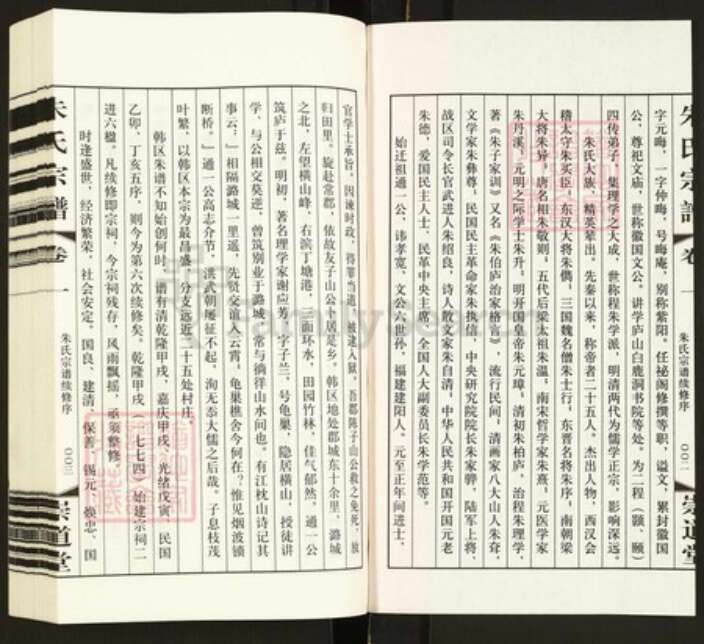 朱氏宗谱 卷一 朱氏宗谱续修序 〇〇二 崇道堂
字元晦,一字仲晦,号晦庵,别称紫阳。任祕阁修撰等职,谥文,累封徽国
公,尊祀文庙,世称徽国文公。讲学庐山白鹿洞书院等处。为二程(颢、颐)
四传弟子,集理学之大成,世称程朱学派,明清两代为儒学正宗,影响深远。
朱氏大族,精英辈出,先秦以来,称帝者二十五人。杰出人物,西汉会
稽太守朱买臣,东汉大将朱儁,三国魏名僧朱士行,东晋名将朱序,南朝梁
大将朱异,唐名相朱敬则,五代后梁太祖朱温,南宋哲学家朱熹,元医学家
朱丹溪,元明之际学士朱升,明开国皇帝朱元璋,清初朱柏庐,治程朱理学,
著《朱子家训》又名《朱伯庐治家格言》,流行民间,清画家八大山人朱耷,
文学家朱彝尊,民国民主革命家朱执信,中央研究院院长朱家骅,陆军上将、
战区司令长官武进人朱绍良,诗人散文家朱自清,中华人民共和国开国元老
朱德,爱国民主人士、民革中央主席、全国人大副委员长朱学范等。
始迁祖通一公,讳孝宽,文公六世孙,福建建阳人。元至正年间进士,
官学士承旨,因谏时政,得罪当道,被逮入狱,吾郡陈子山公救之免死,放
归田里。旋赴常郡,依故友子山公卜居是乡。韩区地处郡城东十余里、潞城
之北,左望横山峰,右滨丁塘港,三面环水,田园竹林,佳气郁然,通一公
筑庐于兹。明初,著名理学家谢应芳,字子兰,号龟巢,隐居横山,授徒讲
学,与公相交莫逆,曾筑别业于潞城,常与徜徉山水间也。有江枕山诗记其
事云:"相隔潞城一里遥,先贤交谊入云霄。龟巢樵舍今何在?惟见烟波锁
断桥。"通一公高志介节,洪武朝屡征不起,洵无忝大儒之后哉。子息枝茂
叶繁,以韩区本宗为最昌盛,分支远近二十五处村庄。
韩区朱谱不知始创何时,谱有清乾隆甲戌,嘉庆甲戌,光绪戊寅,民国
乙卯、丁亥五序,则今为第六次续修矣。乾隆甲戌(一七七四)始建宗祠二
进六楹。凡续修即宗祠,今宗祠残存,风雨飘摇,亟须整修。
时逢盛世,经济繁荣,社会安定。国良、建清、保善、锡元、焕忠、国
朱氏宗谱 卷一 朱氏宗谱续修序 〇〇三 崇道堂
FamilySearch